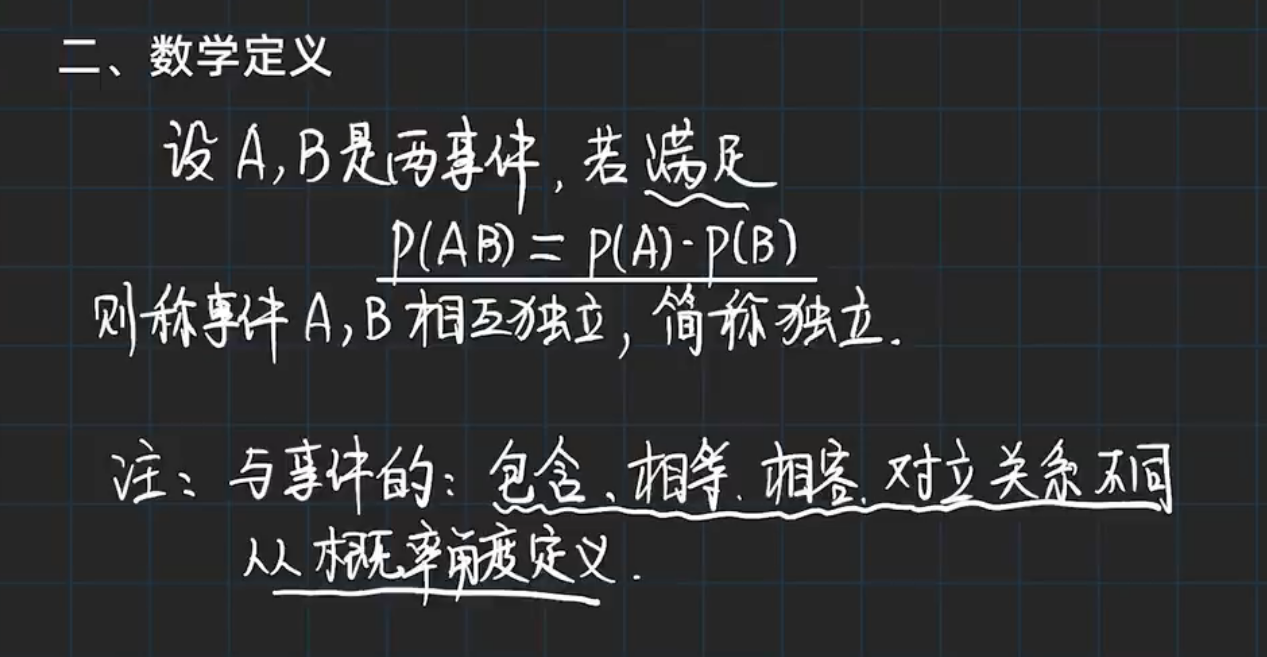 二、数学定义
设 A,B是两事件,若满足
P(AB) = P(A)·P(B)
则称事件 A,B 相互独立,简称独立.
注:与事件的:包含、相等、相容、对立关系不同
从概率角度定义.